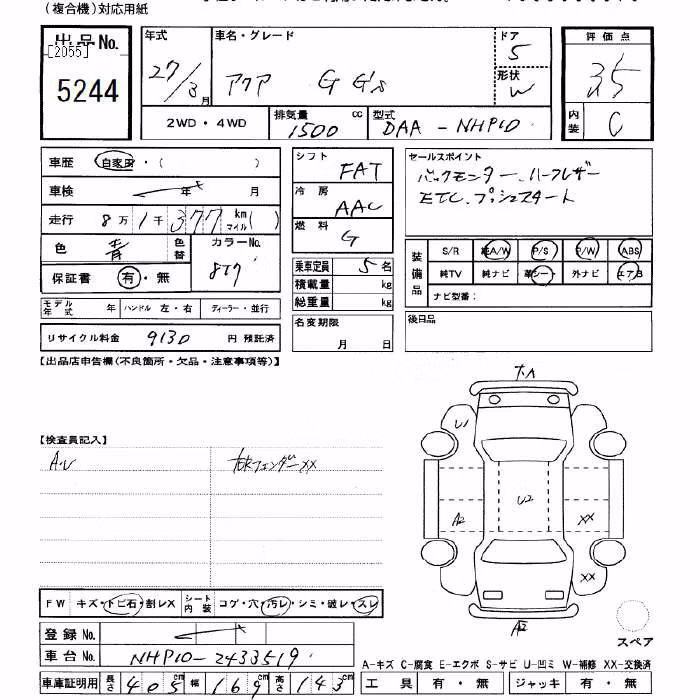 (複合機)対応用紙
出品No. [2055] 5244
年式 27/3月
車名・グレード アクア G G's
ドア 5
形状 W
評価点 3.5
内装 C
2WD・4WD
排気量 1500 cc
型式 DAA-NHP10
車歴 自家用・( )
車検 年 月
走行 8万1千377km マイル( )
色 青 色替
カラーNo. 8T7
保証書 有・無
モデル年式 年 ハンドル 左・右 ディーラー・並行
リサイクル料金 9130 円 預託済
シフト FAT
冷房 AAC
燃料 G
乗車定員 5名
積載量 kg
総重量 kg
名変期限 月 日
セールスポイント
バックモニター、ハーフレザー
ETC、プッシュスタート
装備品 S/R 純A/W P/S P/W ABS
純TV 純ナビ 革シート 外ナビ エアB
ナビ型番:
後日品
【出品店申告欄(不良箇所・欠品・注意事項等)】
【検査員記入】
A・U
右Fフェンダー××
FW キズ・トビ石・割レX シート内装 コゲ・穴・汚レ・シミ・破レ・スレ
登録No.
車台No. NHP10-2433519
車庫証明用 長さ 405cm 幅 169cm 高さ 143cm
U1
A2
U2
XX
XX
A2
スペア
A-キズ C-腐食 E-エクボ S-サビ U-凹ミ W-補修 XX-交換済
工具 有・無 ジャッキ 有・無